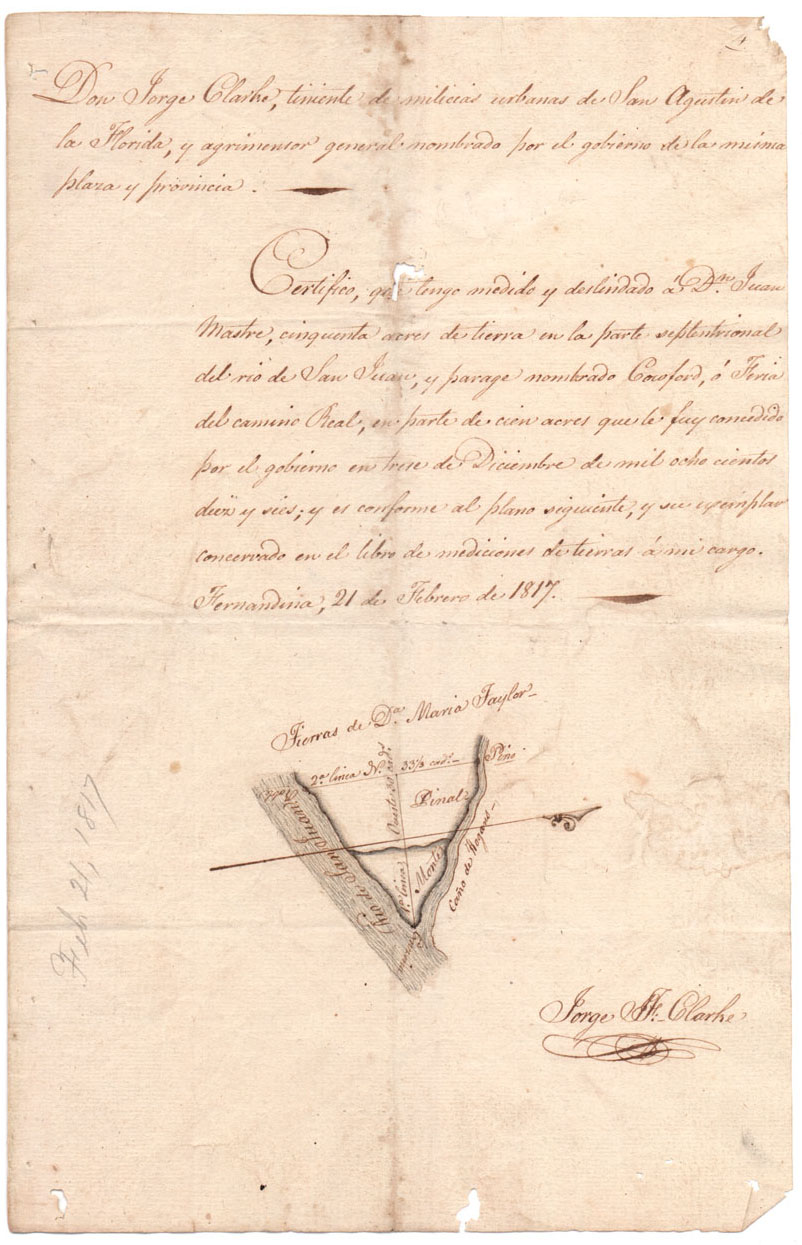 Don Jorge Clarke, teniente de milicias urbanas de San Agustin de
la Florida, y agrimensor general nombrado por el gobierno de la misma
plaza y provincia.
Certifico, que tengo medido y deslindado á Dn. Juan
Mastre, cinquenta acres de tierra en la parte septentrional
del rio de San Juan, y parage nombrado Cowford, ó Feria
del camino Real, en parte de cien acres que le fuy concedido
por el gobierno en trese de Diciembre de mil ocho cientos
diez y sies; y es conforme al plano siguiente, y su exemplar
concervado en el libro de mediciones de tierras á mi cargo.
Fernandina, 21 de Febrero de 1817.
Tierras de Da. Maria Taylor
2a. linea N. 33⅓ cads.
Pino
Pinal
Rio de San Juan
1a. linea
Oueste
Monte
Caño de Hogans
Feb 21, 1817
Jorge J. F. Clarke